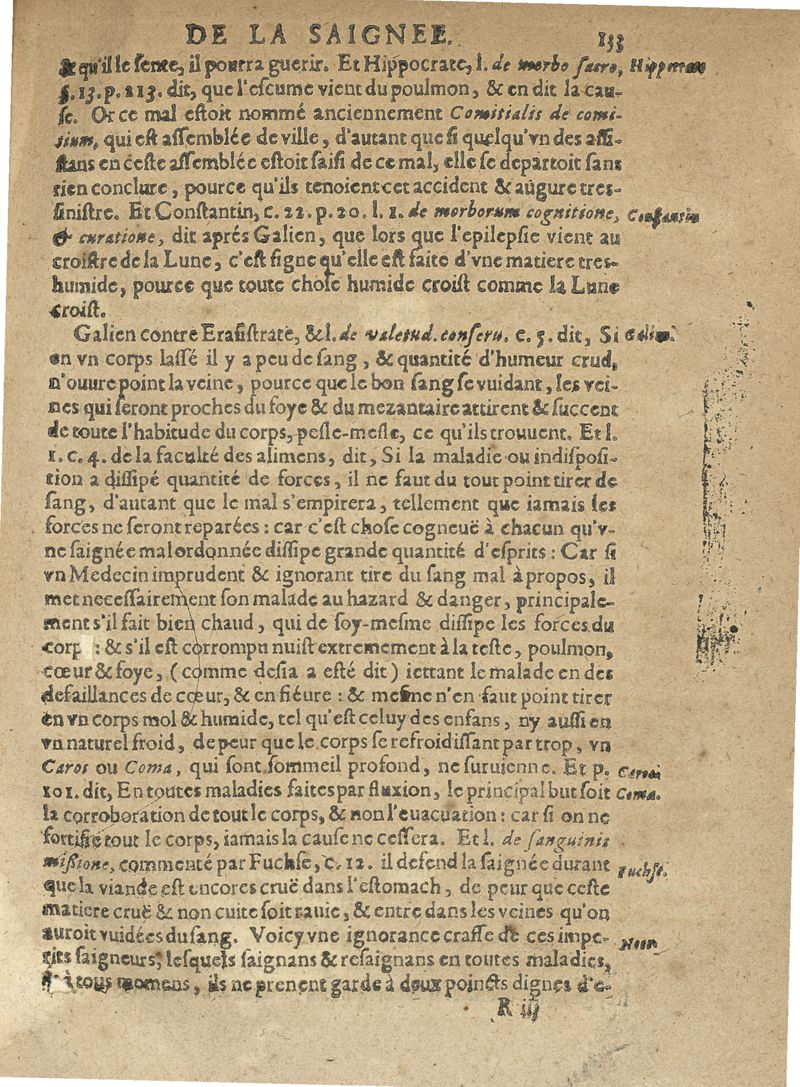 DE LA SAIGNEE. 133
& qu'il le sente, il pourra guerir. Et Hippocrate, l. de morbo sacro,
§. 13. p. 213. dit, que l'escume vient du poulmon, & en dit la cau-
se. Or ce mal estoit nommé anciennement Comitialis de comi-
tium, qui est assemblée de ville, d'autant que si quelqu'vn des assi-
stans en ceste assemblée estoit saisi de ce mal, elle se departoit sans
rien conclure, pource qu'ils tenoient cet accident & augure tres-
sinistre. Et Constantin, c. 22. p. 20. l. 1. de morborum cognitione, Constantin
& curatione, dit aprés Galien, que lors que l'epilepsie vient au
croistre de la Lune, c'est signe qu'elle est faite d'vne matiere tres-
humide, pource que toute chose humide croist comme la Lune
croist.
Galien contre Erasistrate, & l. de valetud. conseru. c. 5. dit, Si Galien.
en vn corps lassé il y a peu de sang, & quantité d'humeur crud,
n'ouure point la veine, pource que le bon sang se vuidant, les vei-
nes qui seront proches du foye & du mezantaire attirent & succent
de toute l'habitude du corps, pesle-mesle, ce qu'ils trouuent. Et l.
1. c. 4. de la faculté des alimens, dit, Si la maladie ou indisposi-
tion a dissipé quantité de forces, il ne faut du tout point tirer de
sang, d'autant que le mal s'empirera, tellement que iamais les
forces ne seront reparées : car c'est chose cogneuë à chacun qu'v-
ne saignée mal ordonnée dissipe grande quantité d'esprits : Car si
vn Medecin imprudent & ignorant tire du sang mal à propos, il
met necessairement son malade au hazard & danger, principale-
ment s'il fait bien chaud, qui de soy-mesme dissipe les forces du
corp : & s'il est corrompu nuist extremement à la teste, poulmon,
cœur & foye, (comme desia a esté dit) iettant le malade en des
defaillances de cœur, & en fiéure : & mesme n'en faut point tirer
en vn corps mol & humide, tel qu'est celuy des enfans, ny aussi en
vn naturel froid, de peur que le corps se refroidissant par trop, vn
Caros ou Coma, qui sont sommeil profond, ne suruienne. Et p.
101. dit, En toutes maladies faites par fluxion, le principal but soit Coma.
la corroboration de tout le corps, & non l'euacuation : car si on ne
fortifie tout le corps, iamais la cause ne cessera. Et l. de sanguinis
missione, commenté par Fuchse, c. 12. il defend la saignée durant Fuchse.
que la viande est encores cruë dans l'estomach, de peur que ceste
matiere cruë & non cuite soit rauie, & entre dans les veines qu'on
auroit vuidées du sang. Voicy vne ignorance crasse de ces impe-
rits saigneurs, lesquels saignans & resaignans en toutes maladies,
& à tous momens, ils ne prenent garde à deux poincts dignes d'e-
R iij